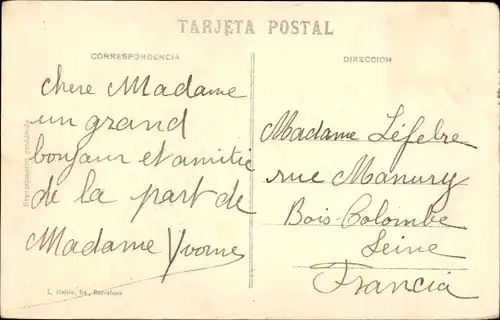 TARJETA POSTAL
CORRESPONDENCIA
DIRECCION
chere Madame
un grand
bonjour et amitie
de la part de
Madame Yvonne
Madame Léfebre
rue Manury
Bois-Colombe
Seine
Francia
Reproducción prohibida